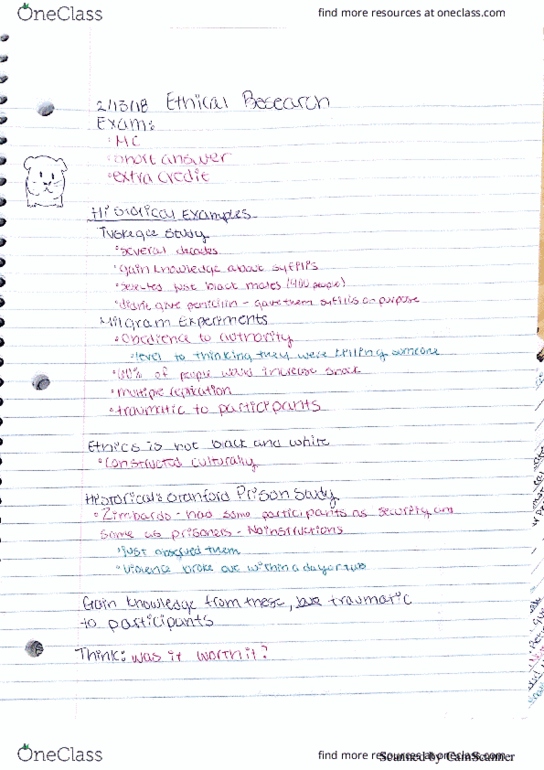 OneClass
find more resources at oneclass.com
2/13/18 Ethical Research
Exam:
MC
short answer
extra credit
Historical Examples
Tuskegee Study
several decades
gain knowledge above syffilis
just black males (400 people)
didnt give penicilin - gave them syfilis on purpose
Milgram Experiments
Obedience to authority
level to thinking they were killing someone
of people would increase shock
multiple replication
traumatic to participants
Ethics is not black and white
constructed culturally
Historical: Stanford Prison Study
Zimbardo - had some participants as security and
some as prisoners - No instructions
just observed them
violence broke out within a day or two
Gain knowledge from these, traumatic
to participants
Think: was it worth it?
OneClass
find more resources at oneclass.com
Scanned by CamScanner